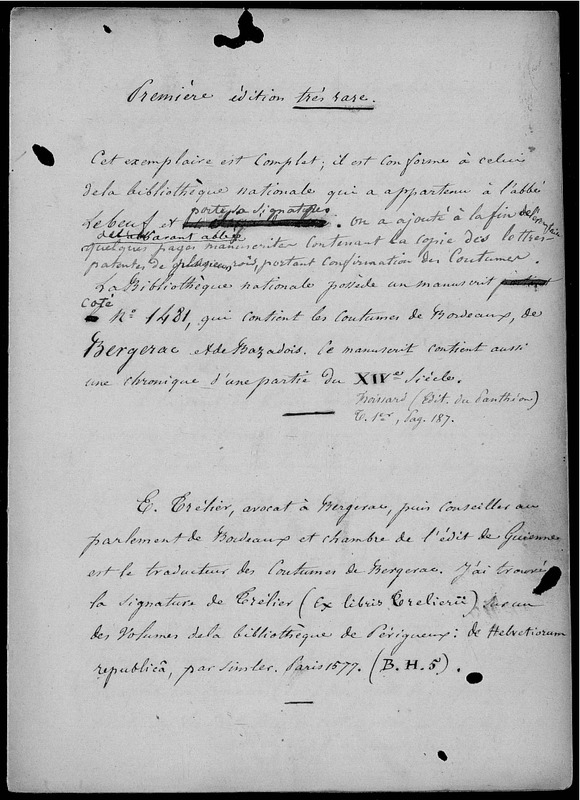 Première édition très rare.
Cet exemplaire est Complet; il est conforme à celui
de la bibliothèque nationale qui a appartenu à l'abbé
porte la signature
Lebeuf et . On a ajouté à la fin de l'exemplaire
du savant abbé
quelques pages manuscrites contenant la copie des lettres-
patentes de plusieurs rois, portant confirmation des Coutumes.
La Bibliothèque nationale possède un manuscrit
coté
N° 1481, qui contient les Coutumes de Bordeaux, de
Bergerac et de Bazadois. Ce manuscrit contient aussi
une chronique d'une partie du XIVe Siècle.
Froissard (Edit. du Panthéon)
T. 1er, Pag. 187.
E. Trélier, avocat à Bergerac, puis Conseiller au
parlement de Bordeaux et chambre de l'édit de Guienne
est le traducteur des Coutumes de Bergerac. J'ai trouvé
la signature de Trélier (Ex libris Trelierii) sur un
des Volumes de la bibliothèque de Périgueux: de Helvetiorum
republicâ, par Simler. Paris 1577. (B. H. 5).